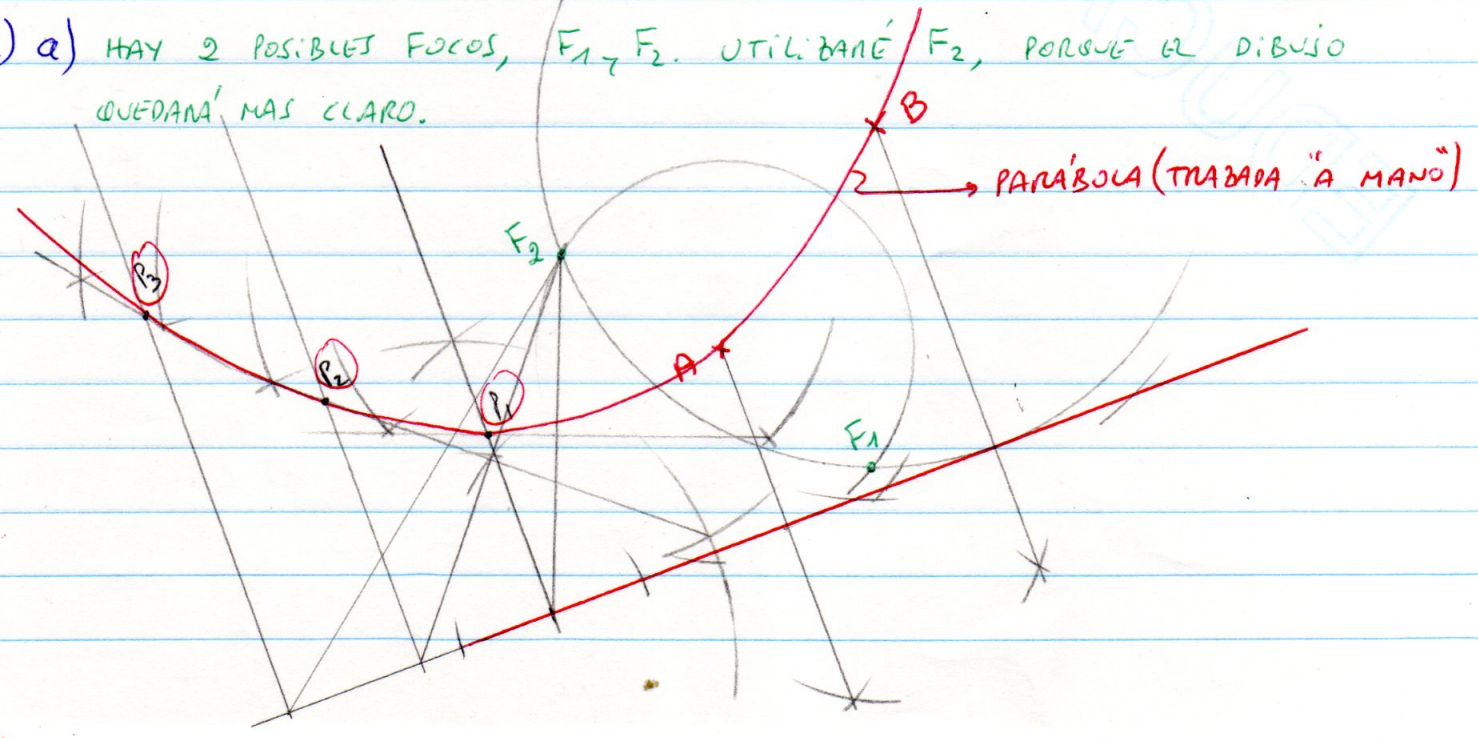 ) a) HAY 2 POSIBLES FOCOS, F1 y F2. UTILIZARÉ F2, PORQUE EL DIBUJO
QUEDARÁ MAS CLARO.
B
PARÁBOLA (TRAZADA "A MANO")
F2
P3
P2
A
P1
F1